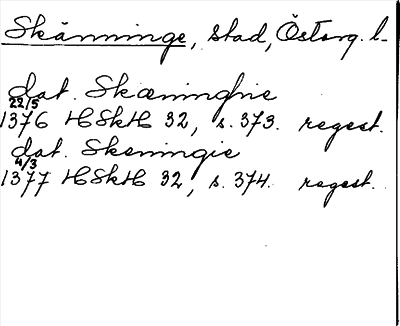 Skänninge, stad, Östorg. l.
dat. Skæninghe
22/5
1376 HSkH 32, s. 373. regest.
dat. Skeningie
4/3
1377 HSkH 32, s. 374. regest.